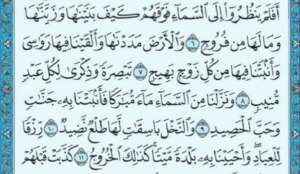 أَفَلَمْ يَنظُرُوٓا۟ إِلَى ٱلسَّمَآءِ فَوْقَهُمْ كَيْفَ بَنَيْنَٰهَا وَزَيَّنَّٰهَا
وَمَا لَهَا مِن فُرُوجٍ ٦ وَٱلْأَرْضَ مَدَدْنَٰهَا وَأَلْقَيْنَا فِيهَا رَوَٰسِىَ
وَأَنۢبَتْنَا فِيهَا مِن كُلِّ زَوْجٍۭ بَهِيجٍ ٧ تَبْصِرَةً وَذِكْرَىٰ لِكُلِّ عَبْدٍ
مُّنِيبٍ ٨ وَنَزَّلْنَا مِنَ ٱلسَّمَآءِ مَآءً مُّبَٰرَكًا فَأَنۢبَتْنَا بِهِۦ جَنَّٰتٍ
وَحَبَّ ٱلْحَصِيدِ ٩ وَٱلنَّخْلَ بَاسِقَٰتٍ لَّهَا طَلْعٌ نَّضِيدٌ ١٠ رِّزْقًا
لِّلْعِبَادِ وَأَحْيَيْنَا بِهِۦ بَلْدَةً مَّيْتًا كَذَٰلِكَ ٱلْخُرُوجُ ١١ كَذَّبَتْ قَبْلَهُمْ